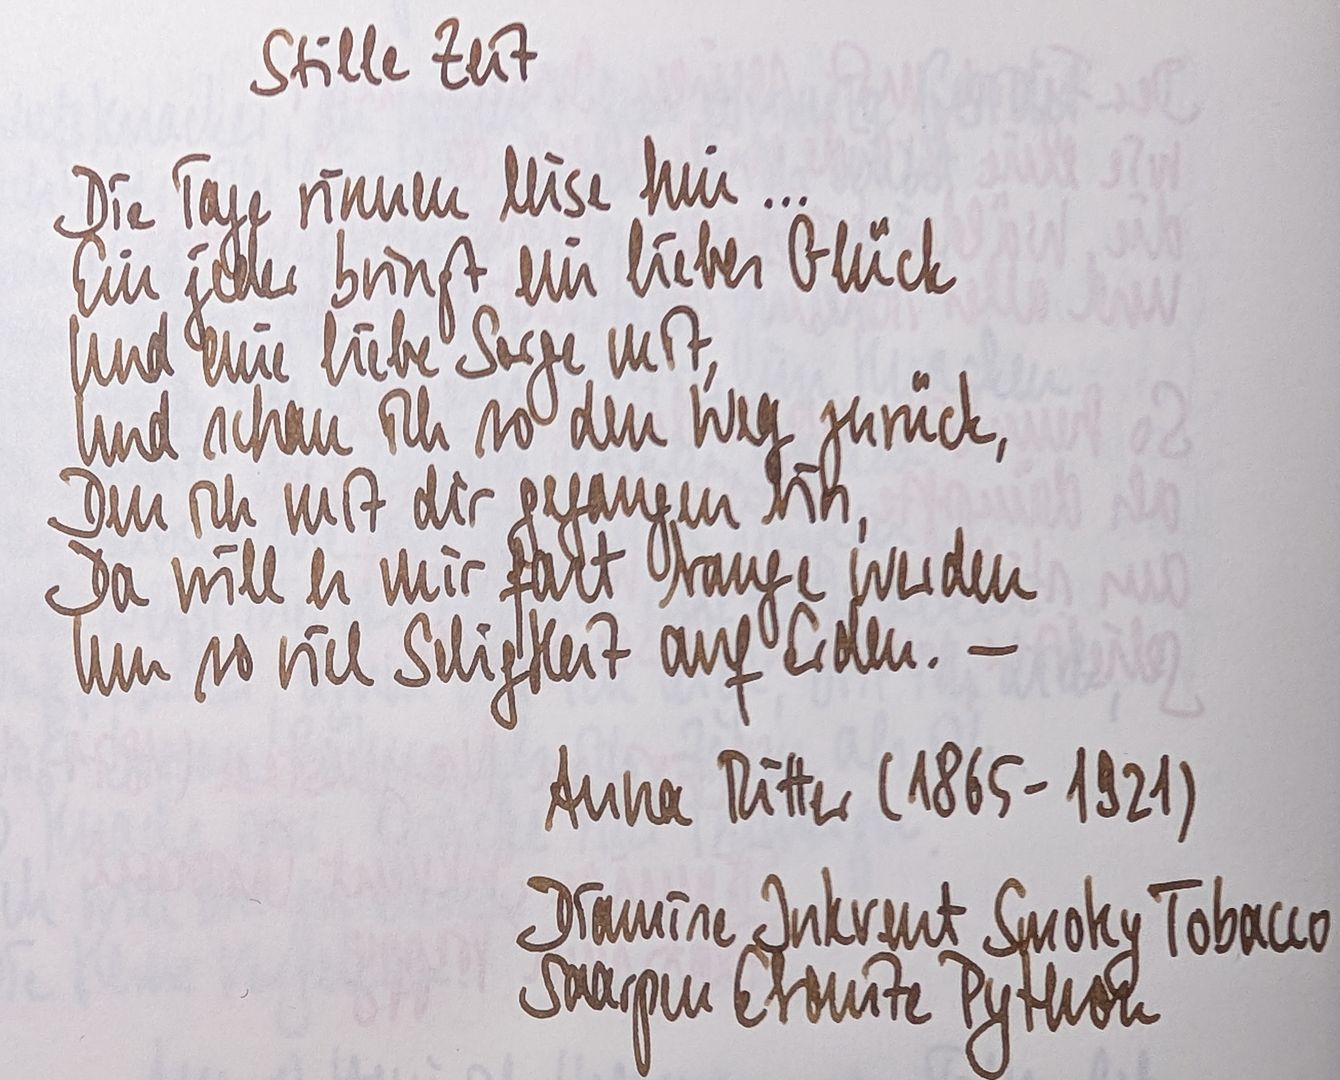 Stille Zeit
Die Tage rinnen leise hin ...
Ein jeder bringt ein liebes Glück
Und eine liebe Sorge mit,
Und schau ich so den Weg zurück,
Den ich mit dir gegangen bin,
Da will es mir fast bange werden
Um so viel Seligkeit auf Erden. —
Anna Ritter (1865-1921)
Diamine Inkvent Smoky Tobacco
Saarpen Ebonite Python